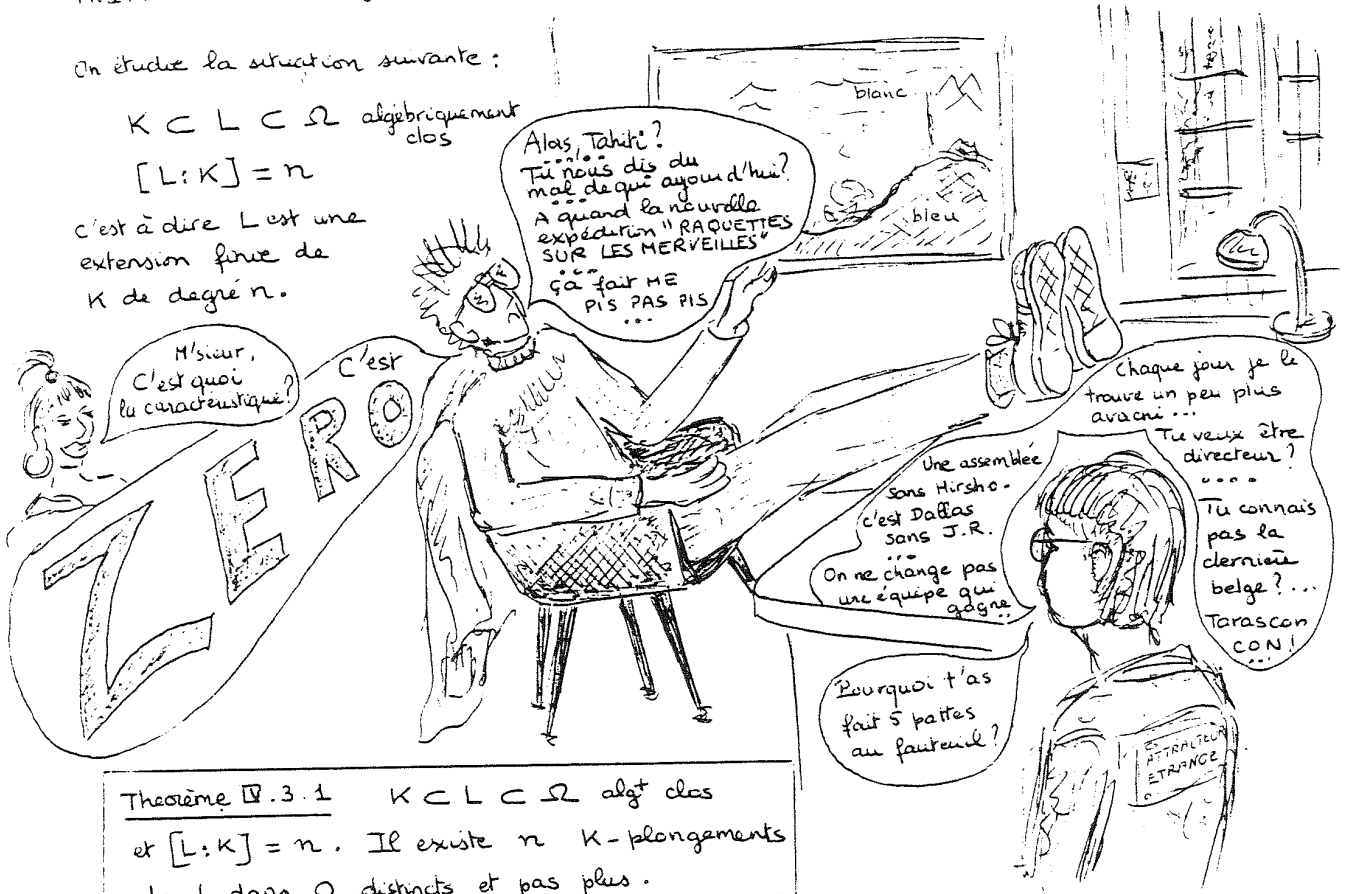 On étudie la situation suivante :
K ⊂ L ⊂ Ω algébriquement
clos
[L:K] = n
c'est à dire L est une
extension finie de
K de degré n.
blanc
bleu
Alors, Tahiti ?
...
Tu nous dis du
mal de qui aujourd'hui ?
...
A quand la nouvelle
expédition "RAQUETTES
SUR LES MERVEILLES"
...
ça fait ME
PIS PAS PIS
...
M'sieur,
C'est quoi
la caractéristique ?
C'est
ZERO
Chaque jour je le
trouve un peu plus
avachi ...
Tu veux être
directeur ?
....
Tu connais
pas la
dernière
belge ? ...
Tarascon
CON !
...
Une assemblée
sans Hirscho.
c'est Dallas
sans J.R.
...
On ne change pas
une équipe qui
gagne
Pourquoi t'as
fait 5 pattes
au fauteuil ?
ATTRACTEUR
ETRANGE
Théorème IV.3.1 K ⊂ L ⊂ Ω algt clos
et [L:K] = n. Il existe n K-plongements
de L dans Ω distincts et pas plus.